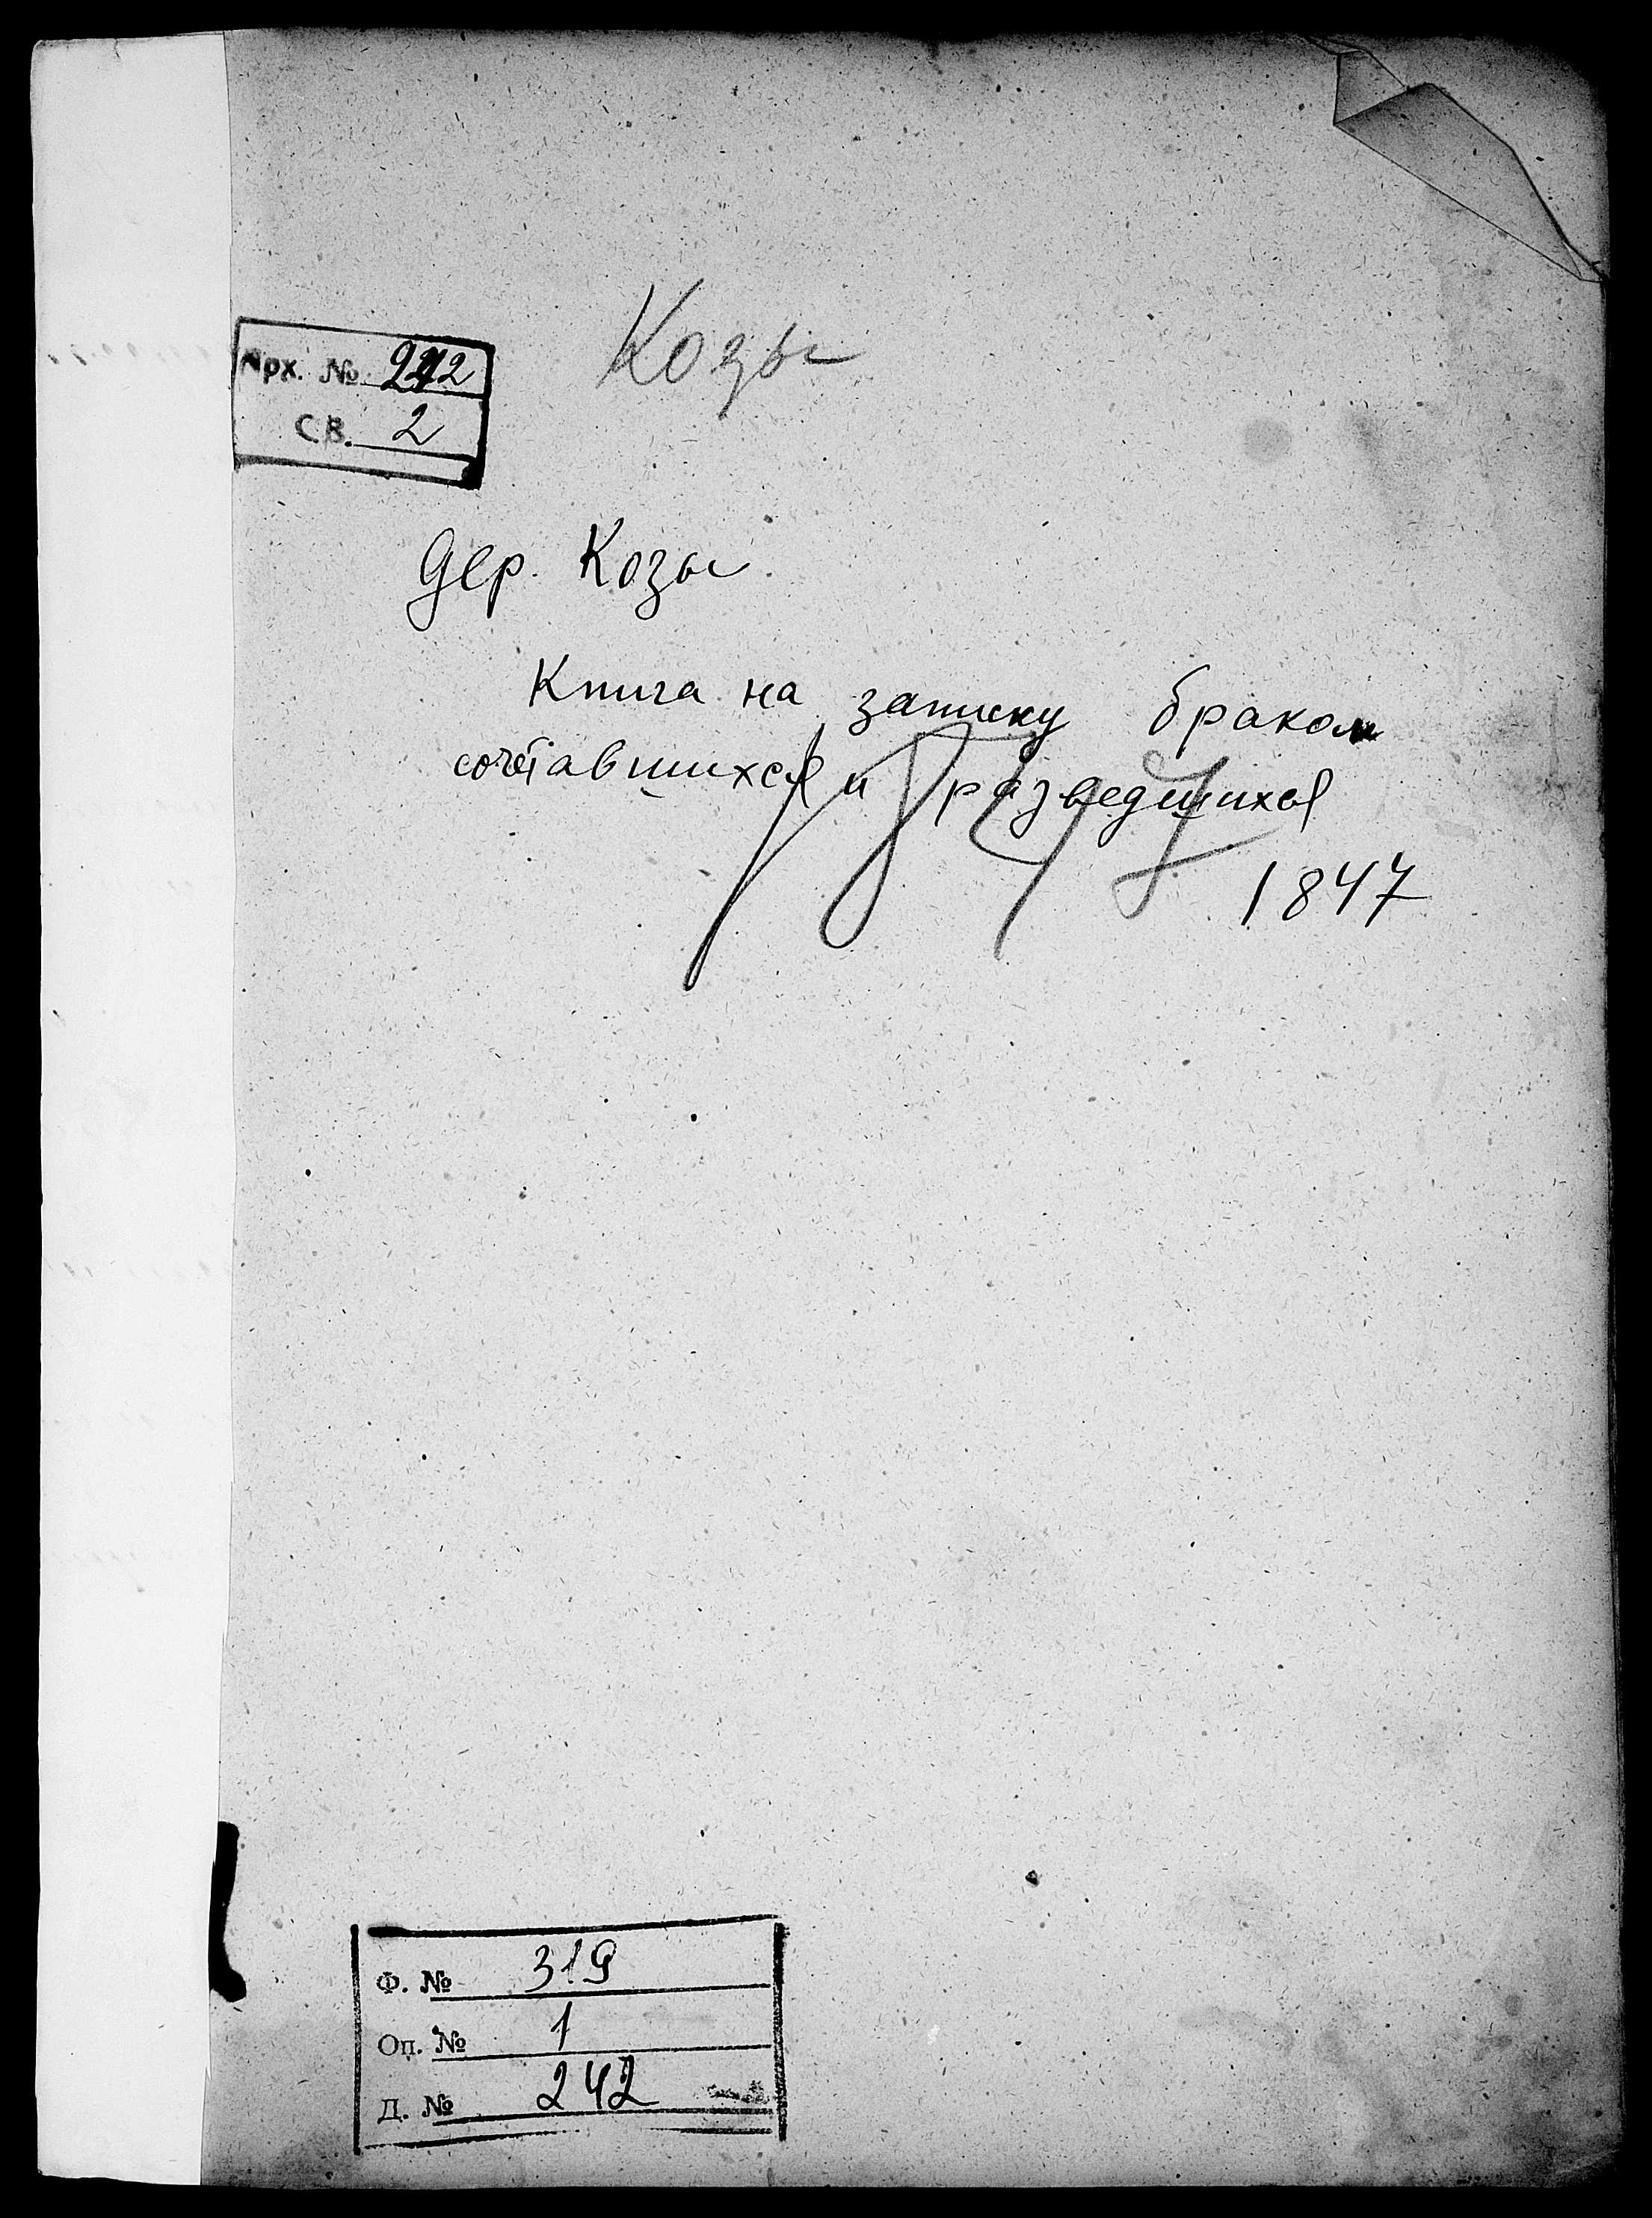 Козы
Арх. № 242
СВ. 2
дер. Козы
Книга на записку браком
сочетавшихся и разведшихся
1847
1847
Ф. № 319
Оп. № 1
Д. № 242